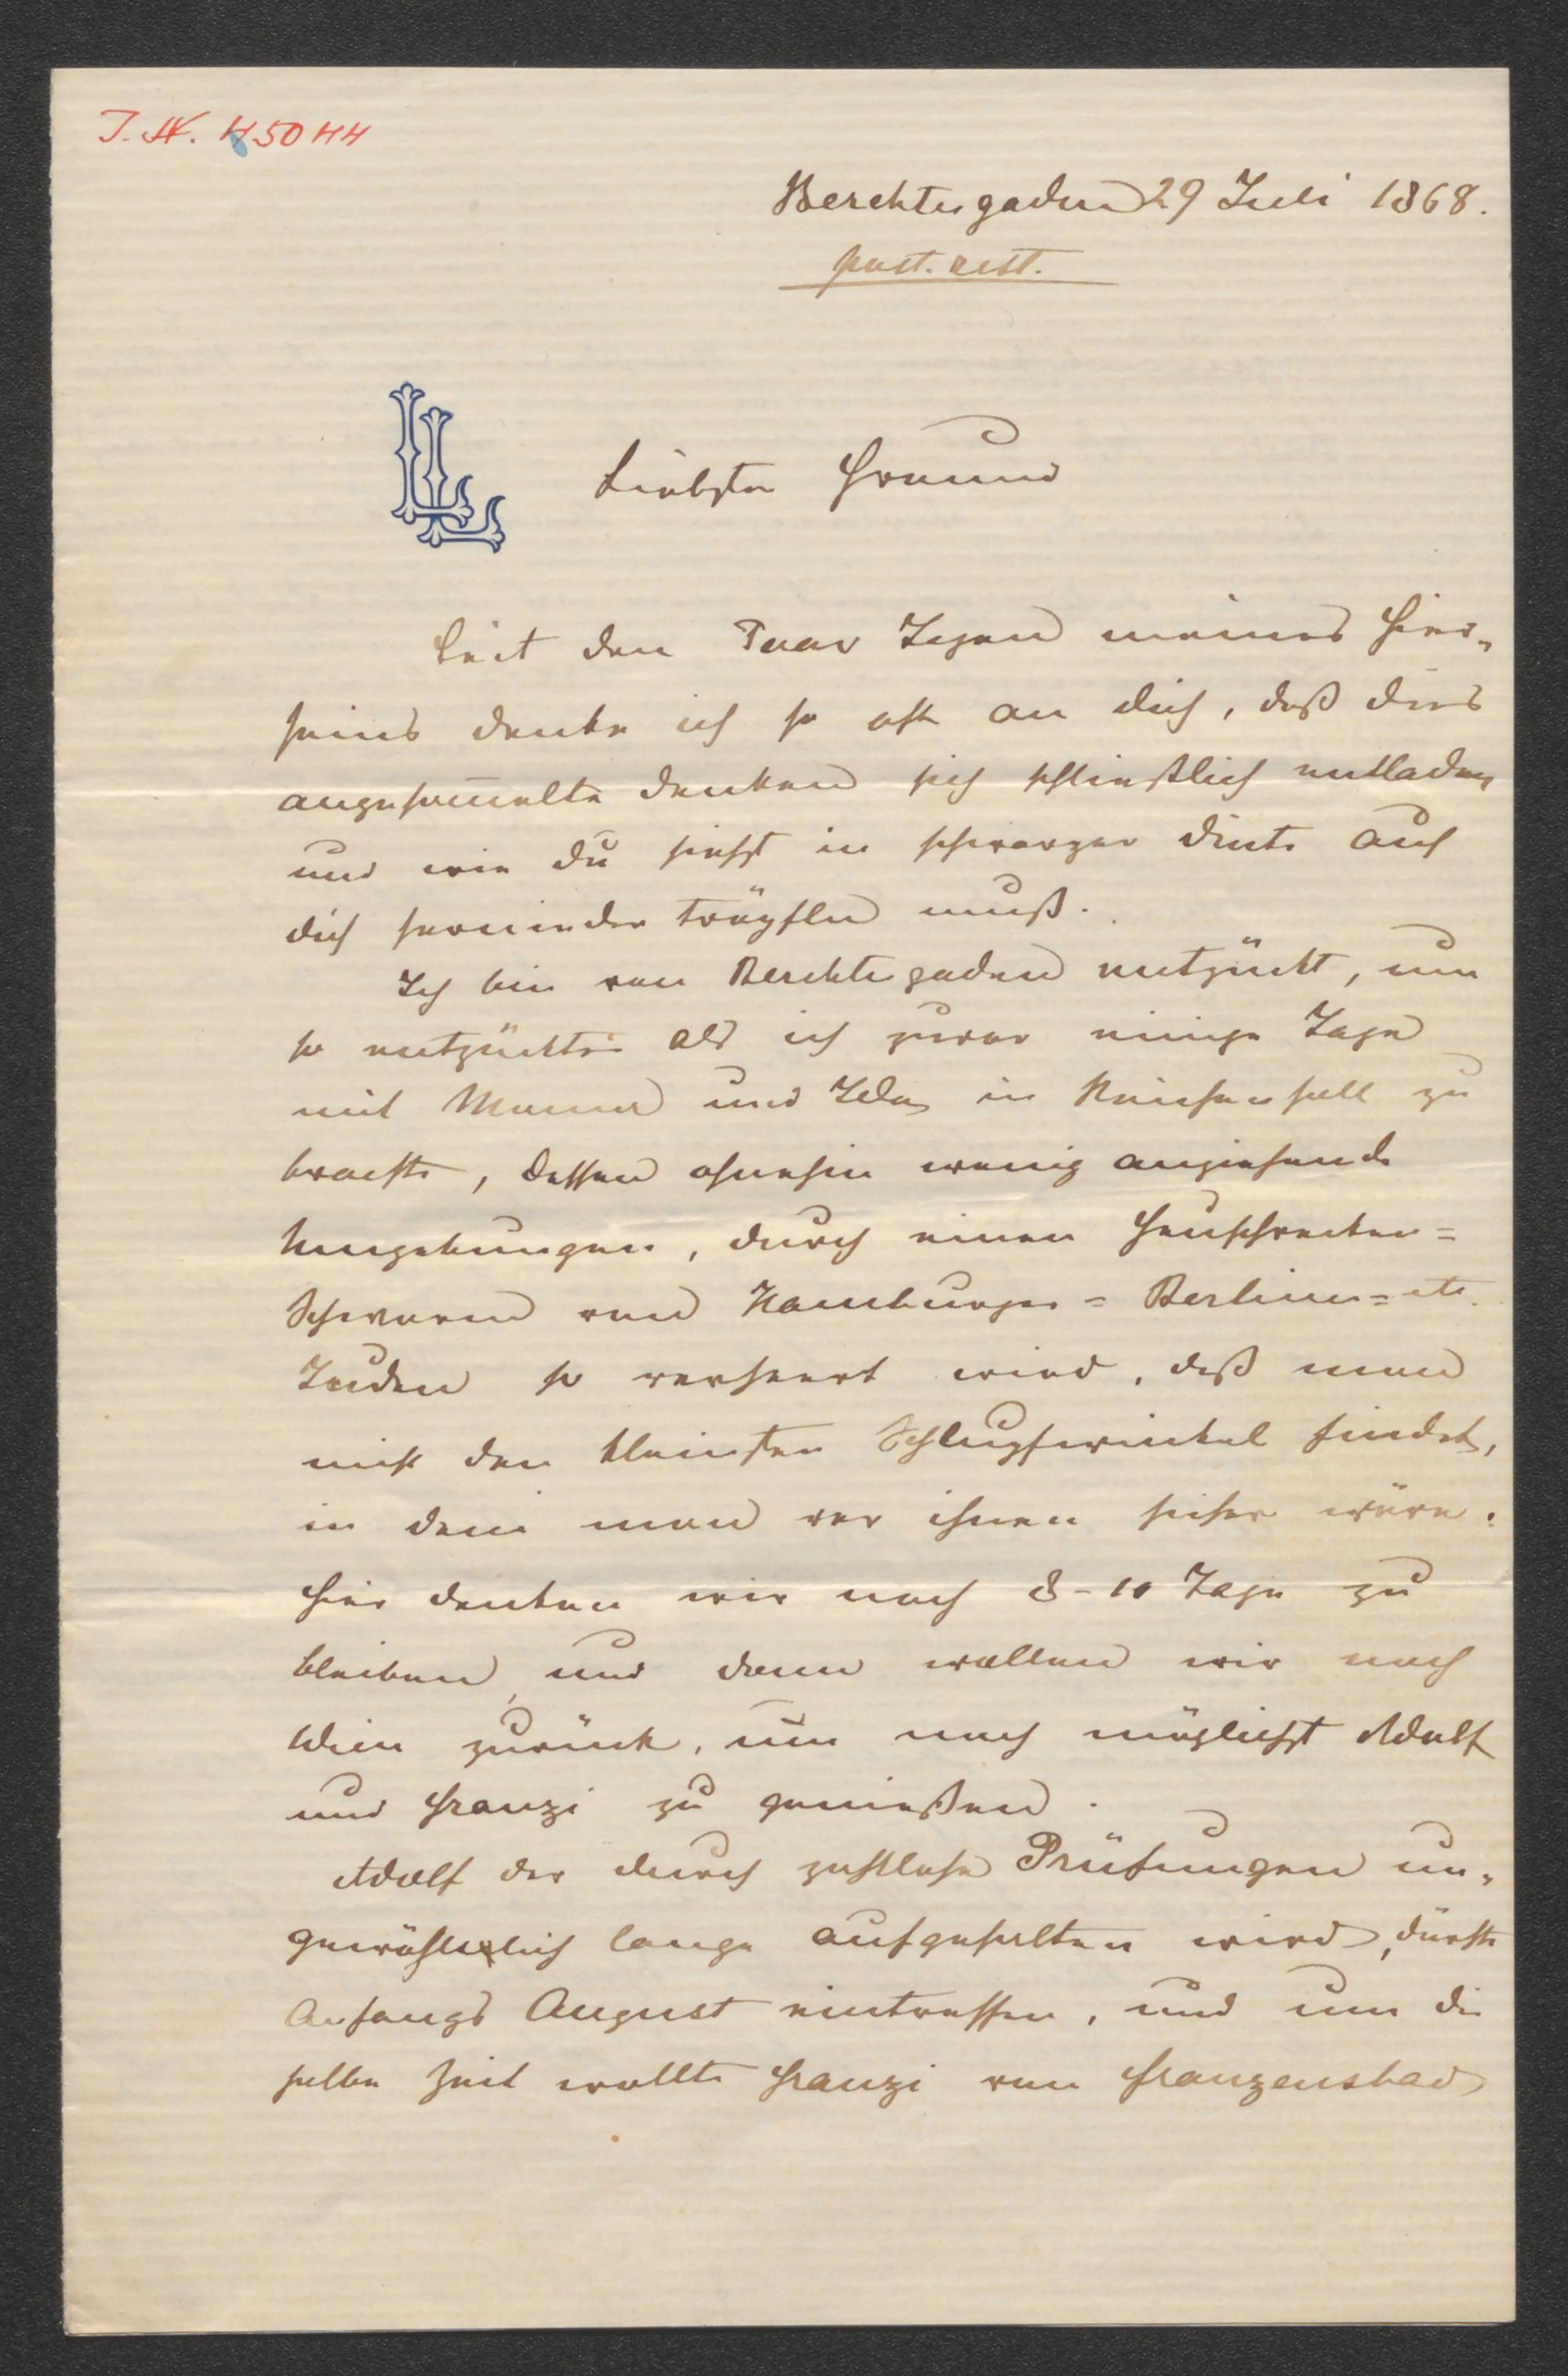 J. N. 45044
Berchtesgaden 29 Juli 1868.
post. rest.
LL
Liebster Freund
Seit den Paar Tagen meines Hier-
seins denke ich so oft an dich, daß dies
angesam̅elte Denken sich schließlich entladen
und wie du siehst in schwarzer Dinte auf
dich hernieder tröpfeln muß.
Ich bin von Berchtesgaden entzückt, um
so entzückter als ich zuvor einige Tage
mit Mama und Ida in Reichenhall zu
brachte, dessen ohnehin wenig anziehende
Umgebungen, durch einen Heuschrecken=
Schwarm von Hamburger= Berliner= etc.
Juden so verheert wird, daß man
nicht den kleinsten Schlupfwinkel findet,
in dem man vor ihnen sicher wäre.
Hier denken wir noch 8-10 Tage zu
bleiben, und dann wollen wir nach
Wien zurück, um noch möglichst Adolf
und Franzi zu genießen.
Adolf der durch zahllose Prüfungen un-
gewöhnlich lange aufgehalten wird, dürfte
Anfangs August eintreffen, und um die
selbe Zeit wollte Franzi von Franzensbad